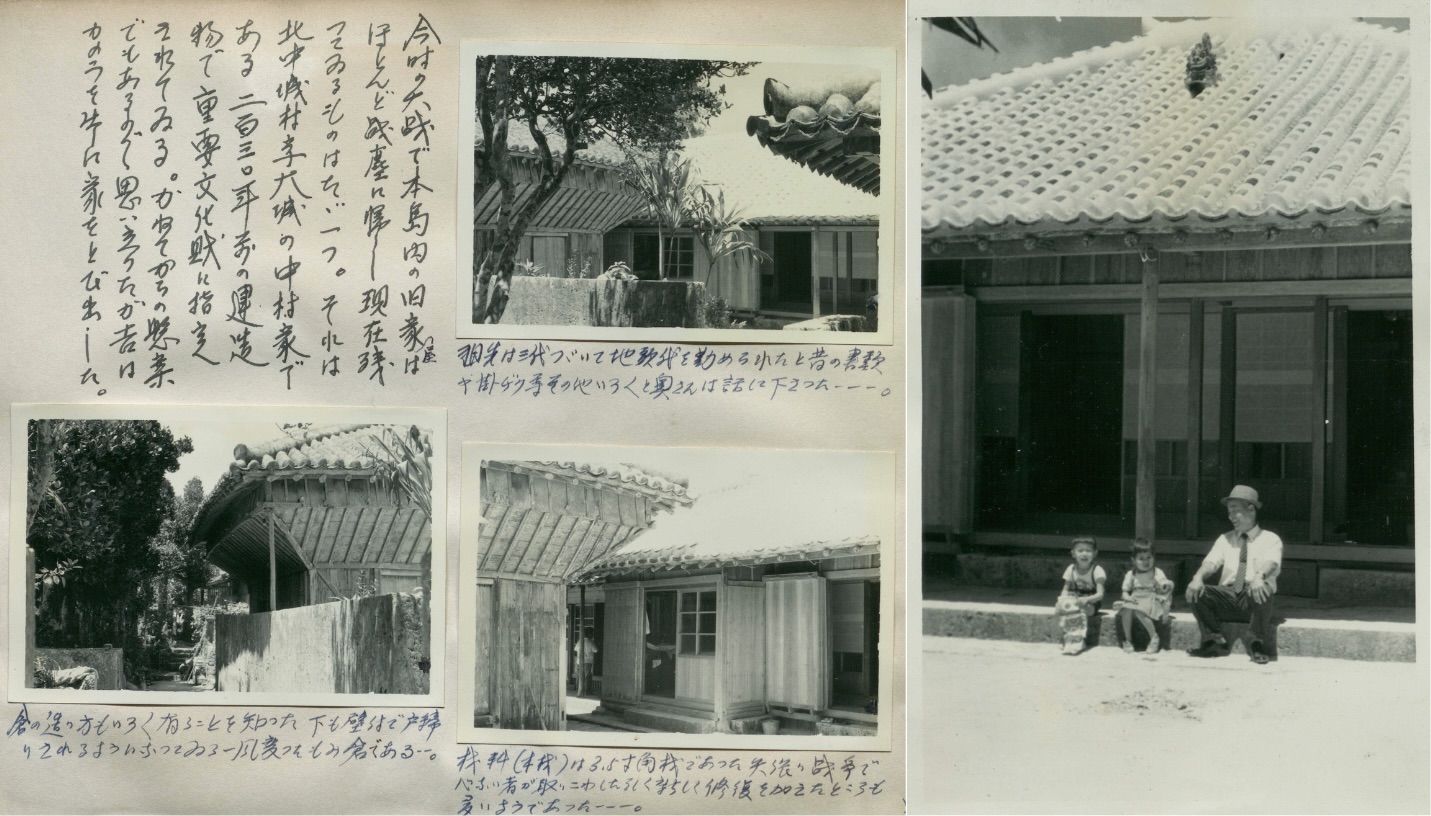 今時の大戦で本島内の旧家屋は
ほとんど戦塵に帰し現在残
つてゐるものはたゞ一つ。それは
北中城村字大城の中村家で
ある 二百三〇年前の建造
物で重要文化財に指定
されてゐる。かねてからの懸案
でもあるので思い立つたが吉日
カのうを牛に家をとび出した。
祖先は三代つづいて地頭代を勤められたと昔の書類
や掛ヂク等その他いろくと奥さんは話して下さつた———。
倉の造り方もいろく有ることを知つた 下も壁付で戸締
りされるようになつてゐる一風変つたもみ倉である—。
材料(木材)は3.5寸角材であつた 矢張り戦争で
心ない者が取りこわしたらしく新しく修復を加えたところも
多いようであつた———。